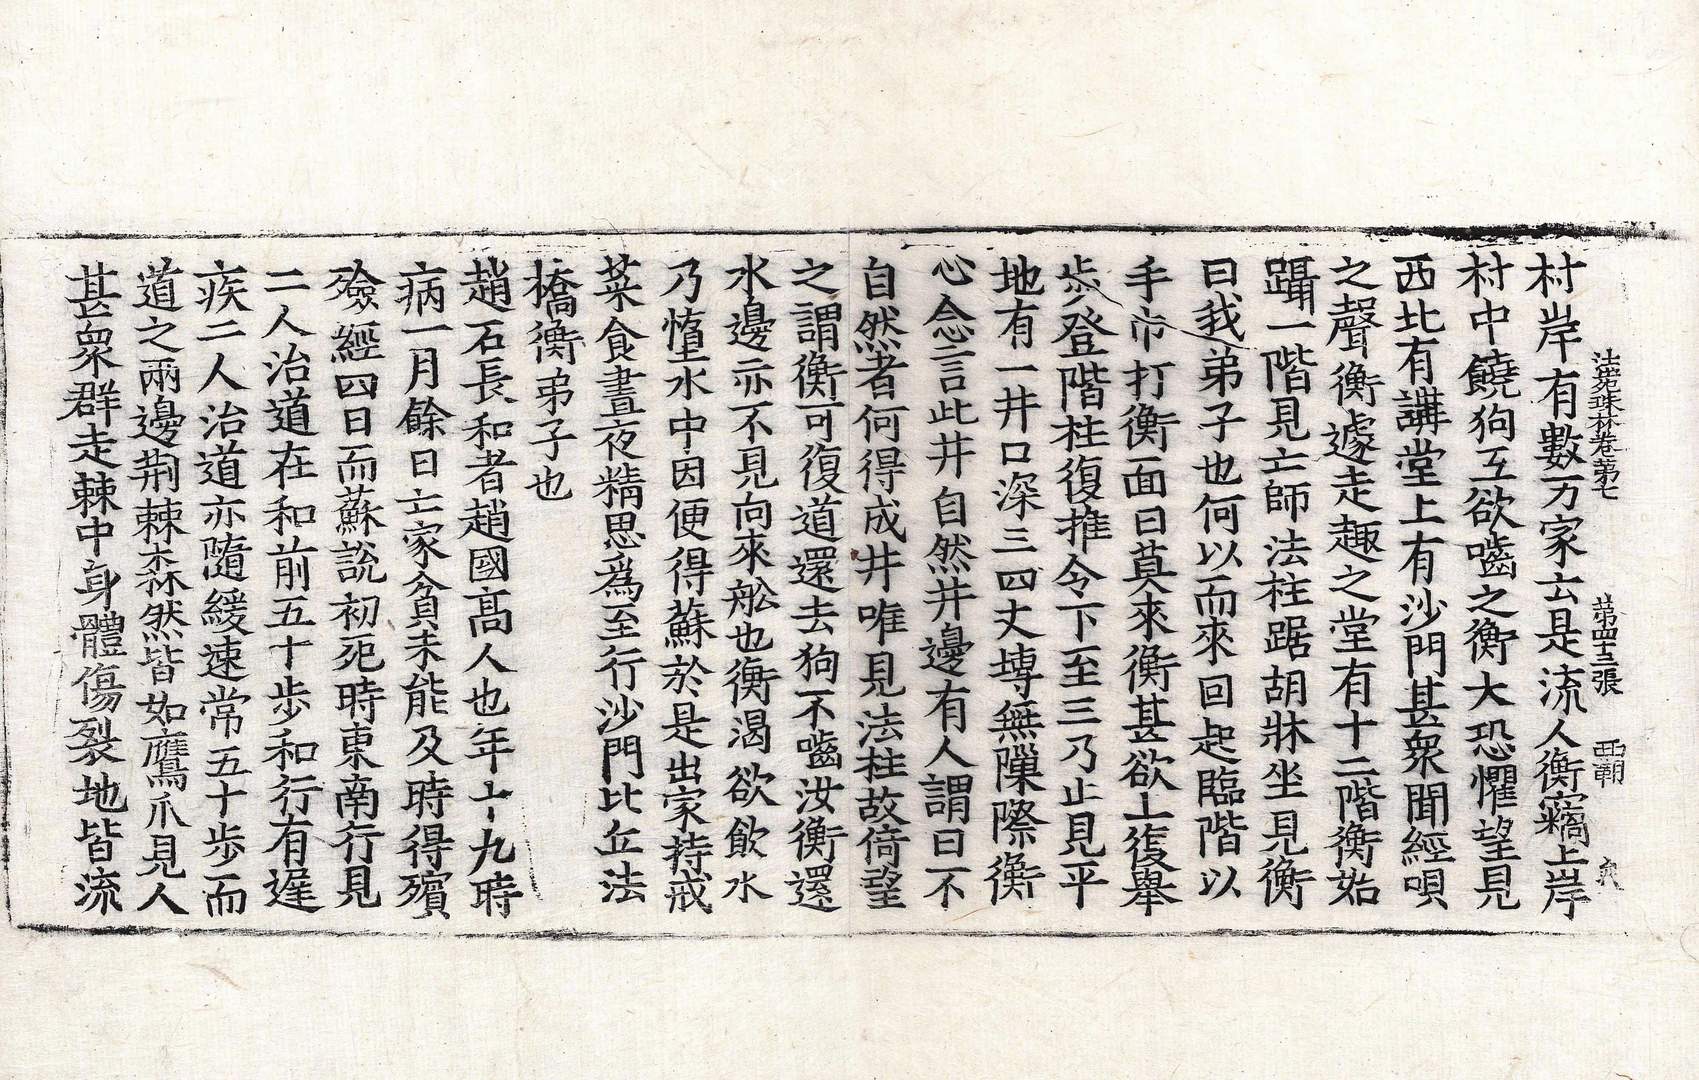 法苑珠林卷第七　第四十三張
村岸有數万家云是流人衡竊上岸
村中饒狗互欲嚙之衡大恐懼望見
西北有講堂上有沙門甚衆聞經唄
之聲衡遽走趣之堂有十二階衡始
躡一階見亡師法柱踞胡牀坐見衡
曰我弟子也何以而來回起臨階以
手巾打衡面曰莫來衡甚欲上復舉
步登階柱復推令下至三乃止見平
地有一井口深三四丈塼無𨻶際衡
心念言此井自然井邊有人謂曰不
自然者何得成井唯見法柱故倚望
之謂衡可復道還去狗不嚙汝衡還
水邊亦不見向來舩也衡渴欲飲水
乃墮水中因便得蘇於是出家持戒
菜食晝夜精思爲至行沙門比丘法
橋衡弟子也
趙石長和者趙國髙人也年十九時
病一月餘日亡家貧未能及時得殯
殮經四日而蘇說初死時東南行見
二人治道在和前五十步和行有遲
疾二人治道亦隨緩速常五十步而
道之兩邊荆棘森然皆如鷹爪見人
甚衆群走棘中身體傷裂地皆流